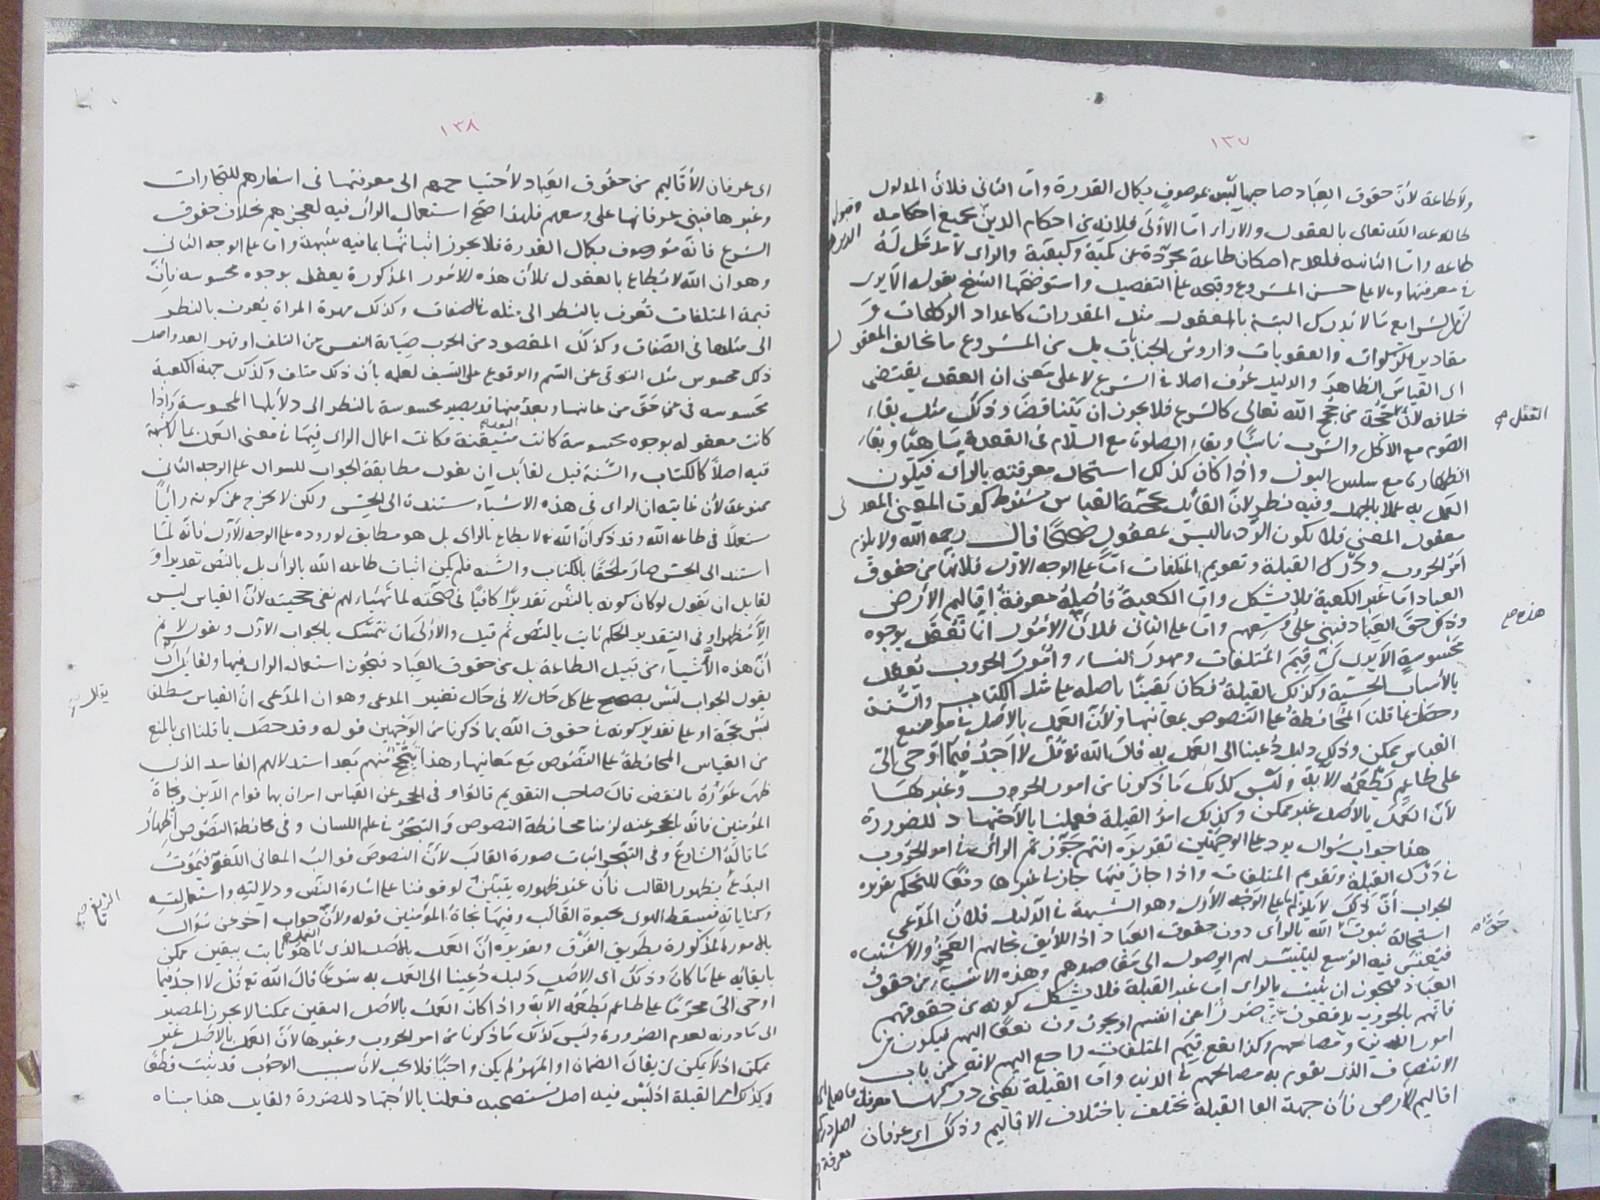 ١٣٧
ولا طاعة لأن حقوق العباد صاحبها ليس بموصوف بكمال القدرة وأما الثاني فلأن المدلول
طاعة الله تعالى بالعقول والآراء أما الأولى فلأنه من أحكام الدين بجميع أحكامه
طاعة وأما الثانية فلعدم إمكان طاعة مجردة عن كمية وكيفية والرأي لا مدخل له
في معرفتها ولا على حسن المشروع وقبحه على التفصيل واستوضحها الشيخ بقوله ألا يرى
أن من الشرايع ما لا يدرك البتة بالعقول مثل المقدرات كاعداد الركعات و
مقادير الزكوات والعقوبات وأروش الجنايات بل من المشروع ما يخالف المعقول
أي القياس الظاهر والدليل عرف أصلا في الشرع لا على معنى أن العقل يقتضي
خلافه لأن العقل حجة من حجج الله تعالى كالشرع فلا يجوز أن يتناقضا وذلك مثل بقاء
الصوم مع الأكل والشرب ناسيا وبقاء الصلوة مع السلام في القعدة ساهيا وبقاء
الطهارة مع سلس البول وإذا كان كذلك استحال معرفته بالرأي فيكون
العمل به عملا بالجهل وفيه نظر لأن القايل بحجية القياس شرط كون المعنى المعدى
معقول المعنى فلا يكون الرد بما ليس بمعقول صحيحا قال رحمه الله ولا يلزم
أمر الحروب ودرك القبلة وتقويم المتلفات أما على الوجه الأول فلأنها من حقوق
العباد أما غير الكعبة فلا يشكل وأما الكعبة فأصله معرفة أقاليم الأرض
وذلك حق العباد فبني على وسعهم وأما على الثاني فلأن هذه الأمور إنما تعقل بوجوه
محسوسة ألا يرى أن قيم المتلفات ومهور النساء وأمور الحروب تعقل
بالأسباب الحسية وكذلك القبلة فكان يقينا بأصله على مثال الكتاب والسنة
وحصل بما قلنا المحافظة على النصوص بمعانيها ولأن العمل بالأصل في مواضع
القياس ممكن وذلك دليل دعينا إلى العمل به قال الله تعالى قل لا أجد فيما أوحي إلي
على طاعم يطعمه الآية وليس كذلك ما ذكرنا من أمور الحروب وغيرها
لأن العمل بالأصل غير ممكن وكذلك أمر القبلة فعملنا بالاجتهاد للضرورة
هذا جواب سؤال يرد على الوجهين تقريره أنتم جوزتم الرأي في أمر الحروب
في درك القبلة وتقويم المتلفات وإذا جاز فيها جاز في غيرها دفعا للتحكم تقرير
الجواب أن ذلك لا يلزم أما على الوجه الأول وهو الشبهة في الدليل فلأن المدعى
استحالة ثبوت حق الله بالرأي دون حقوق العباد إذ اللايق بحالهم العجز والاشتباه
فيعتبر فيه الوسع ليتيسر لهم الوصول إلى مقاصدهم وهذه الأشياء من حقوق
العباد فيجوز أن يثبت بالرأي أما غير القبلة فلا يشكل كونه من حقوقهم
فإنهم بالحروب يدفعون ضررا عن أنفسهم أو يجرون نفعا إليهم فيكون من
أمور الدنيا ومصالحهم وكذا نفع قيم المتلفات راجع إليهم لأنه من باب
الانتصاف الذي يقوم به مصالحهم في الدنيا وأما القبلة يعني دركها معرفة
أقاليم الأرض فإن جهة القبلة تختلف باختلاف الأقاليم وذلك أي عرفان
وقبول
العقل صح
هذه صح
حق صح
١٣٨
أي عرفان الأقاليم من حقوق العباد لاحتياجهم إلى معرفتها في أسفارهم للتجارات
وغيرها فبني عرفانها على وسعهم فلهذا صح استعمال الرأي فيه لعجزهم بخلاف حقوق
الشرع فإنه موصوف بكمال القدرة فلا يجوز إثباتها بما فيه شبهة وأما على الوجه الثاني
وهو أن الله لا يطاع بالعقول فلأن هذه الأمور المذكورة يعقل بوجوه محسوسة فإن
قيمة المتلفات تعرف بالنظر إلى مثله في الصفات وكذلك مهرة المرأة يعرف بالنظر
إلى مثلها في الصفات وكذلك المقصود من الحرب صيانة النفس عن التلف أو قهر العدو وأصل
ذلك محسوس مثل التوقي عن السم والوقوع على السيف لعلمه بأن ذلك متلف وكذلك جهة الكعبة
محسوسة في حق من عاينها وبعد منها قد يصير محسوسة بالنظر إلى دلايلها المحسوسة وإذا
كانت معقولة بوجوه محسوسة كانت متيقنة فكانت إعمال الرأي فيها في معنى العمل بما لا شبهة
فيه أصلا كالكتاب والسنة قيل لقايل أن يقول مطابقة الجواب للسؤال على الوجه الثاني
ممنوعة لأن غايته أن الرأي في هذه الأشياء مستندة إلى الحس ولكن لا يخرج عن كونه رأيا
مستعملا في طاعة الله وقد ذكر أن الله لا يطاع بالرأي بل هو مطابق لوروده على الوجه الأول فإنه لما
استند إلى الحس صار ملحقا بالكتاب والسنة فلم يكن إثبات طاعة الله بالرأي بل بالنص تقديرا و
لقايل أن يقول لو كان كونه بالنص تقديرا كافيا في صحته لما تهيأ لهم نفي حجيته لأن القياس ليس
إلا مظهرا وفي التقدير الحكم ثابت بالنص ثم قيل والأولى أن نتمسك بالجواب الأول ونقول لا نم
أن هذه الأشياء من قبيل الطاعة بل من حقوق العباد فيجوز استعمال الرأي فيها ولقايل أن
يقول الجواب ليس بصحيح على كل حال إلا في حال تغيير المدعى وهو أن المدعى أن القياس مطلقا
ليس بحجة أو على تقدير كونه في حقوق الله بما ذكرنا من الوجهين قوله وقد حصل بما قلنا أي بالمنع
من القياس المحافظة على النصوص مع معانيها وهذا تبجح منهم بعد استدلالهم الفاسد الذي
ظهر عواره بالنقض قال صاحب التقويم قالوا وفي الحجر عن القياس أمران بهما قوام الدين ونجاة
المؤمنين فإنه بالحجر عنه لزمنا محافظة النصوص والتبحر في علم اللسان وفي محافظة النصوص إظهار
ما قاله الشارع وفي التبحر إثبات صورة القالب لأن النصوص قوالب المعاني اللغوية فيموت
البدع بظهور القالب فإن عند ظهوره يتبين لوقوفنا على إشارة النص ودلالته واستعارته
وكناياته فيسقط الهوى بحيوة القالب وفيهما نجاة المؤمنين قوله ولأن جواب آخر عن سؤال
بالأمور المذكورة بطريق الفرق وتقريره أن العمل بالأصل الذي ما هو ثابت بيقين ممكن
بابقائه على ما كان وذلك أي الأصل دليل دعينا إلى العمل به شرعا قال الله تعالى قل لا أجد فيما
أوحي إلي محرما على طاعم يطعمه الآية وإذا كان العمل بالأصل اليقين ممكنا لا يجوز المصير
إلى ما دونه لعدم الضرورة وليس كذلك ما ذكرنا من أمر الحروب وغيرها لأن العمل بالأصل غير
ممكن إذ لا يمكن أن يقال الضمان أو المهر لم يكن واجبا فلا يجب لأن سبب الوجوب قد ثبت قطعا
وكذلك أمر القبلة إذ ليس فيه أصل مستصحب فعملنا بالاجتهاد للضرورة ولقايل هذا مبناه